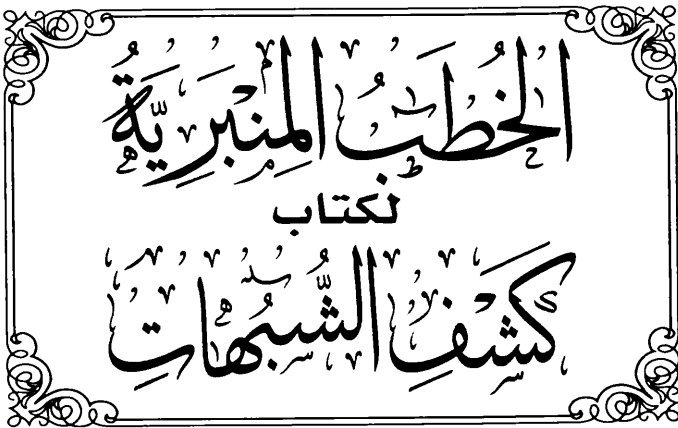 الخُطَبُ المِنْبَرِيَّةُ
لكتاب
كَشْفِ الشُّبُهَاتِ